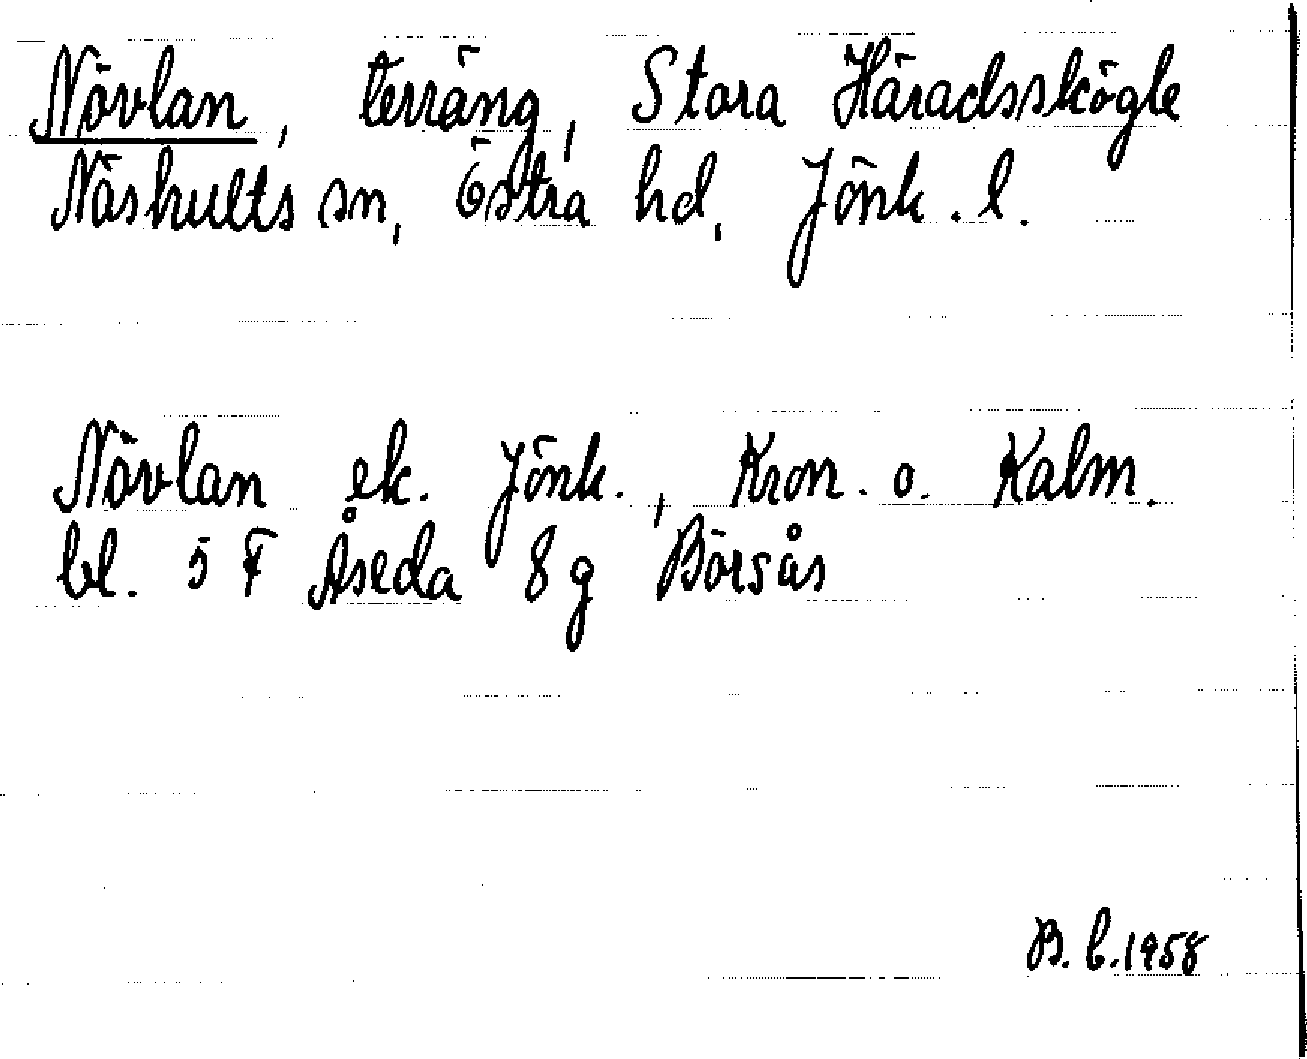 Nävlan, terräng, Stora Häradsskögle
Näshults sn, Östra hd, Jönk. l.
Nävlan ek. Jönk., Kron. o. Kalm.
bl. 5 F Åseda 8 g Börsås
B. b. 1958